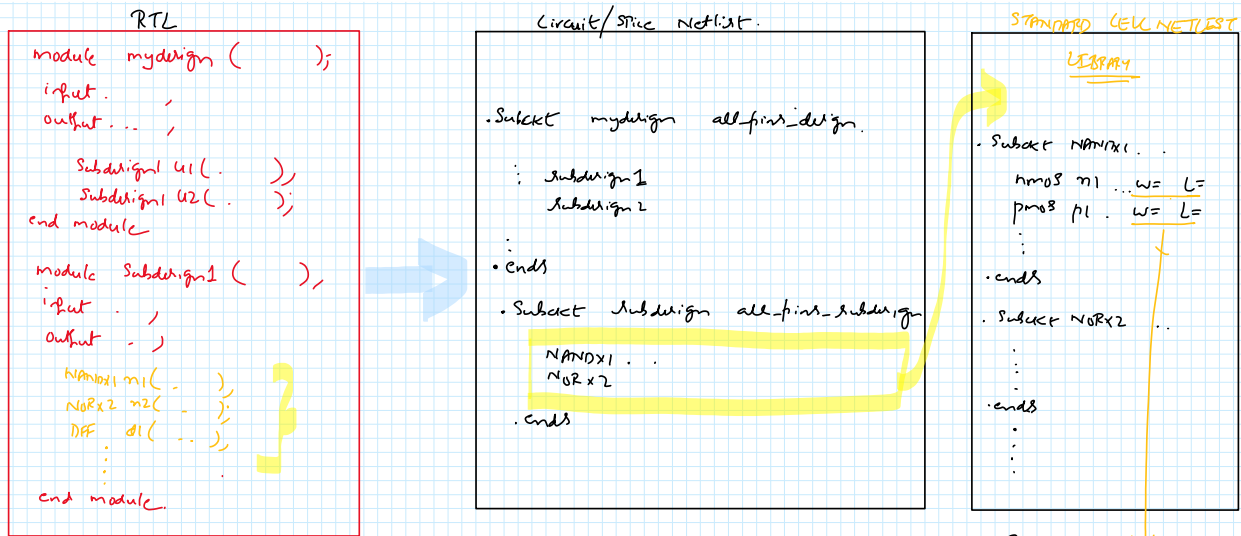 RTL
module mydesign ( );
input . ,
output ... ,
Subdesign1 U1( . ),
Subdesign1 U2( . );
end module
module Subdesign1 ( ),
input . ,
output . ,
NANDX1 n1( . ),
NORx2 n2( . );
DFF d1( .. ),
end module.
Circuit/Spice Netlist.
.Subckt mydesign all_pins_design.
: subdesign1
subdesign2
:
.ends
.Subckt subdesign all_pins_subdesign
NANDX1 . .
NORx2
.ends
STANDARD CELL NETLIST
LIBRARY
. Subckt NANDX1 . .
nmos n1 ... W= L=
pmos p1 . W= L=
:
.ends
. Subckt NORX2 ..
:
.ends
: